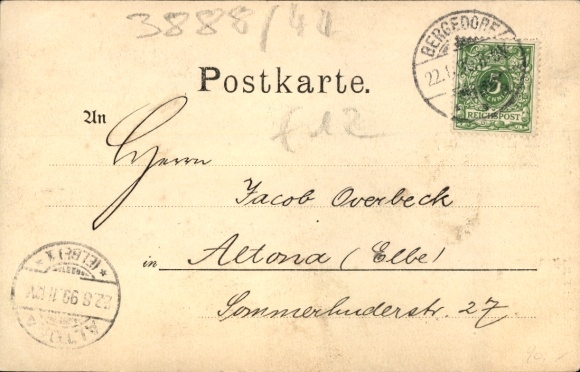 3888/41
BERGEDORF
22.
5
REICHSPOST
Postkarte.
An
Herrn
f 12
Jacob Overbeck
in Altona (Elbe)
Sommerhuderstr. 27.
(ELBE) 1
22.6.99